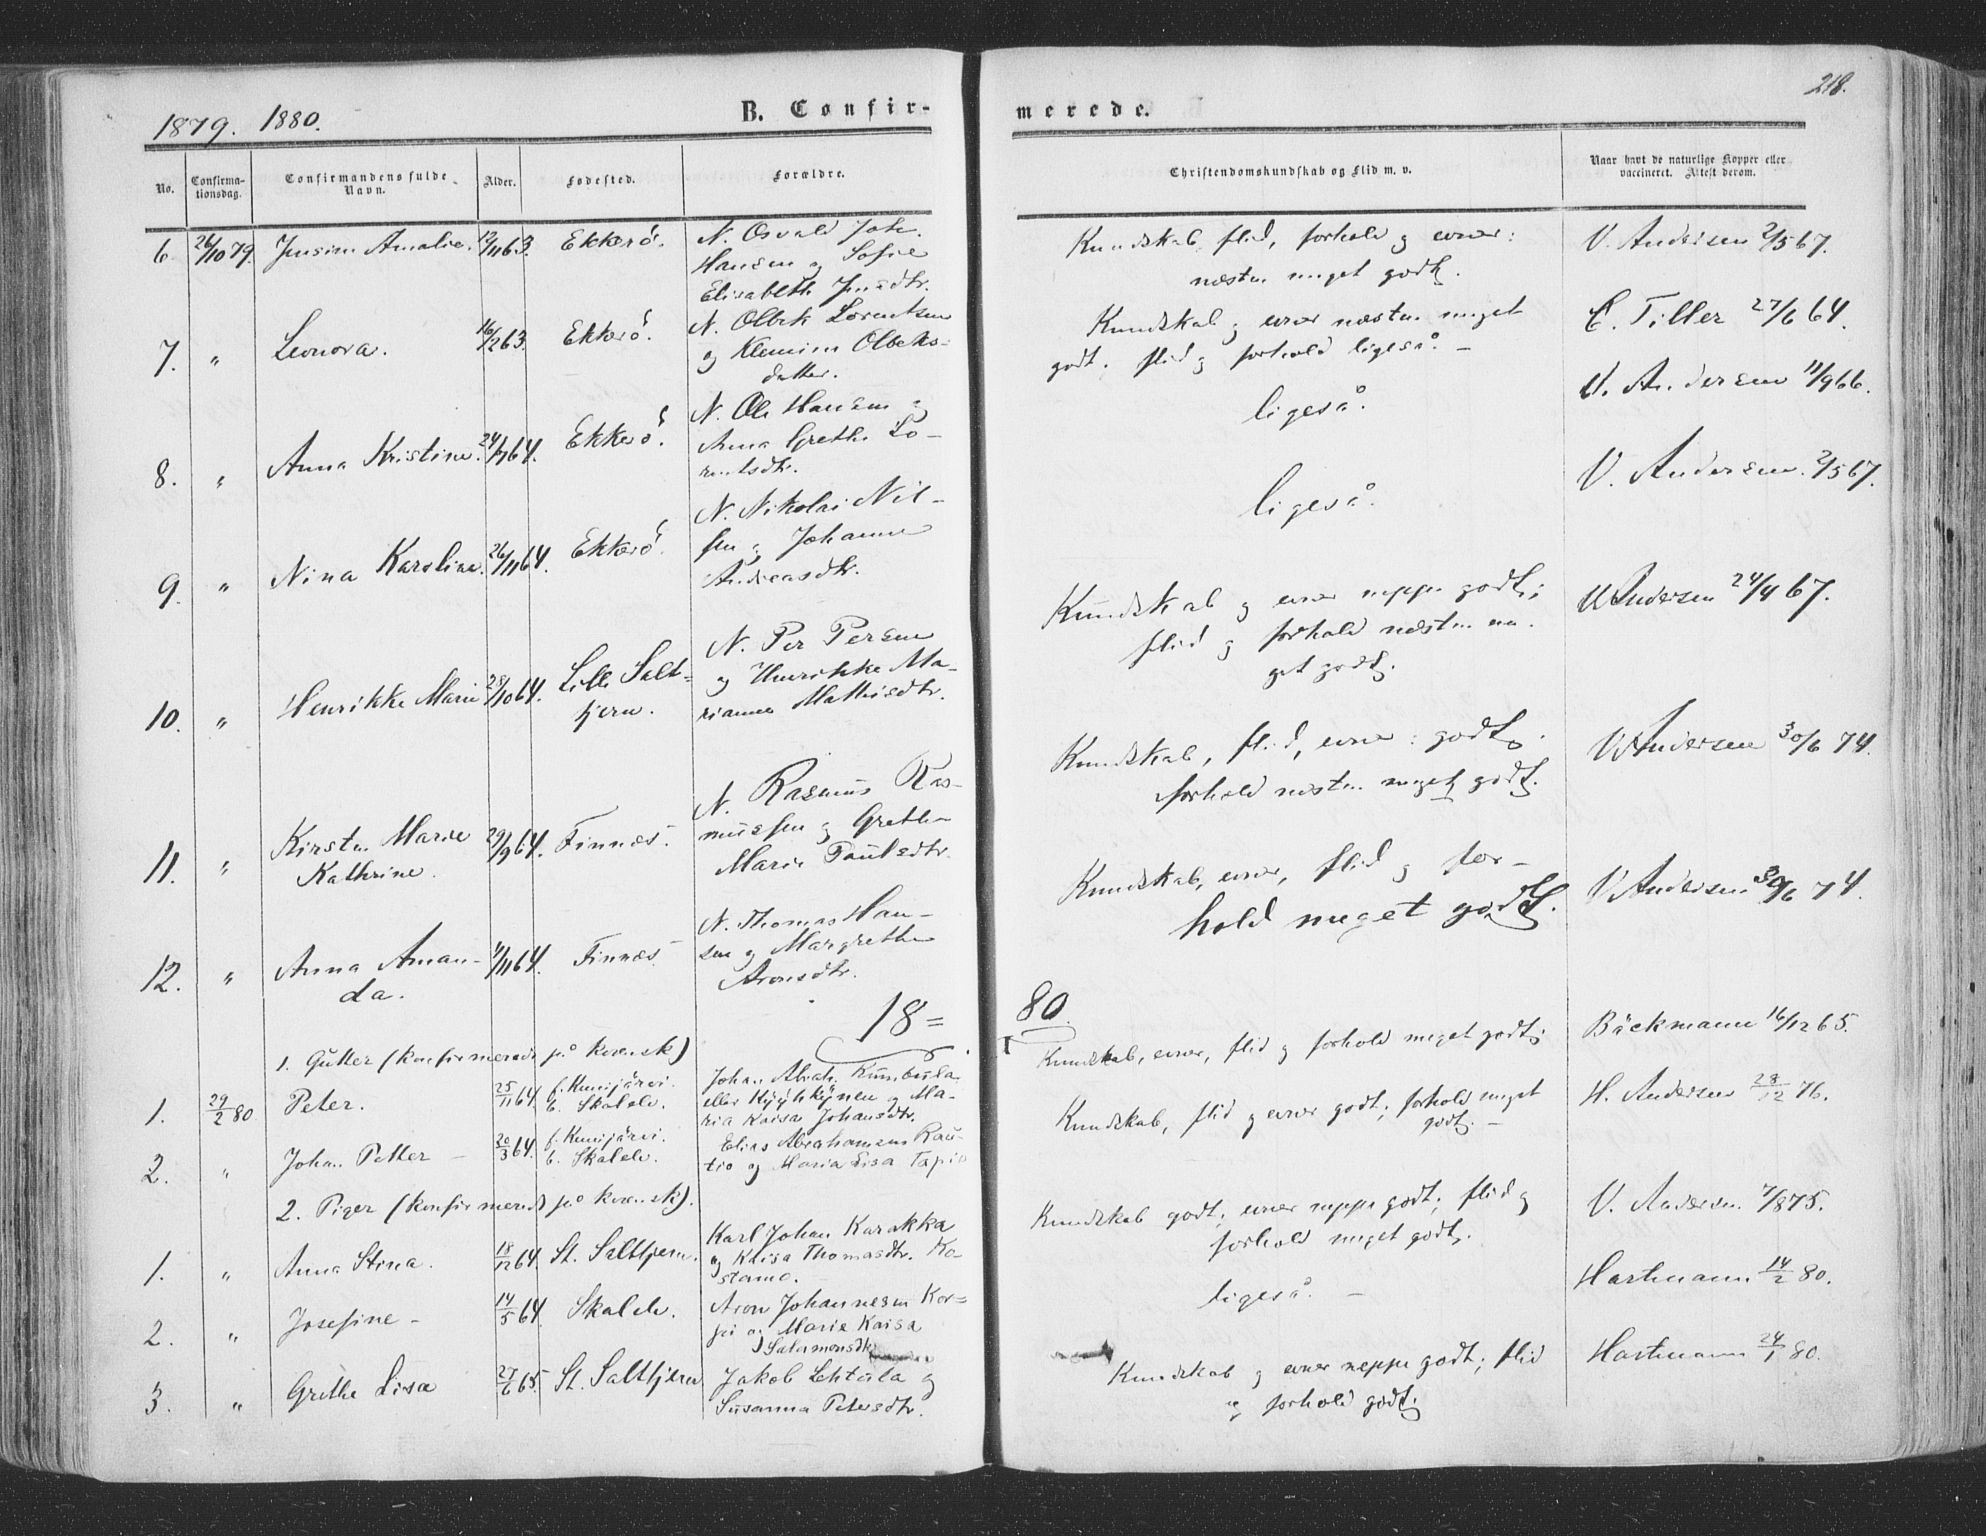 218.
1879. 1880.
B. Confir-
merede.
No.
Confirma-
tionsdag.
Confirmandens fulde
Navn.
Alder.
Fødested.
Forældre.
Christendomskundskab og Flid m. v.
Naar havt de naturlige Kopper eller
vaccineret. Attest derom.
6. 26/10 79. Jensine Amalie. 12/11 63. Ekkerö. N. Osvald Joh.
Hansen og Sofie
Elisabeth Jensdtr.
Kundskab, flid, forhold og evner:
næsten meget godt.
V. Andersen 2/5 67.
7. " Leonora. 16/12 63. Ekkerö. N. Olbek Lorentsen
og Klemine Olbeks-
datter.
Kundskab og evner næsten meget
godt. flid og forhold ligeså. -
C. Tiller 27/6 64.
8. " Anna Kristine. 24/7 64. Ekkerö. N. Ole Hansen og
Anna Grethe Lo-
rentsdtr.
ligeså.
V. Andersen 11/9 66.
9. " Nina Karoline. 26/11 64. Ekkerö. N. Nikolai Nil-
sen og Johanne
Andreasdtr.
ligeså.
V. Andersen. 2/5 67.
10. " Henrikke Marie 28/10 64. Lille Salt-
fjern.
N. Per Persen
og Henrikke Ma-
rianne Mathisdtr.
Kundskab og evner neppe godt;
flid og forhold næsten me-
get godt.
V Andersen 24/4 67.
11. " Kirsten Marie
Kathrine.
29/9 64. Finnæs. N. Rasmus Ras-
mussen og Grethe
Marie Paulsdtr.
Kundskab, flid, evner: godt.
forhold næsten meget godt.
V Andersen 30/6 74.
12. " Anna Aman-
da.
4/11 64. Finnæs. N. Thomas Han-
sen og Margrethe
Aronsdtr.
Kundskab, evner, flid og for-
hold meget godt.
V Andersen 30/6 74.
18=
80.
1. Gutter (konfirmerede på kvensk)
1. 29/2 80 Peter. 25/11 64. f. Kemijärvi.
b. Skalelv.
Johan Abrah. Kumbula
eller Kyyhkynen og Ma-
ria Kaisa Johansdtr.
Kundskab, evner, flid og forhold meget godt;
Bäckmann 16/12 65.
2. " Johan Petter - 20/3 64. f. Kemijärvi.
b. Skalelv.
Elias Abrahamsen Rau-
tio og Maria Lisa Tapio
Kundskab, flid og evner godt; forhold meget
godt. -
H. Andersen 28/12 76.
2. Piger (konfirmerede på kvensk).
1. " Anna Stina. 18/12 64. St. Saltfjern. Karl Johan Karakka
og Kaisa Thomasdtr. Ko-
stamo.
Kundskab godt; evner neppe godt; flid og
forhold meget godt.
V. Andersen 7/8 75.
2. " Josefine - 14/5 64. Skalelv. Aron Johannesen Kor-
pi og Marie Kaisa
Salomonsdtr.
ligeså. -
Hartmann 14/2 80.
3. " Grethe Lisa 27/6 65. St. Saltfjern Jakob Lehtula og
Susanna Petersdtr.
Kundskab og evner neppe godt; flid
og forhold godt;
Hartmann 24/1 80.